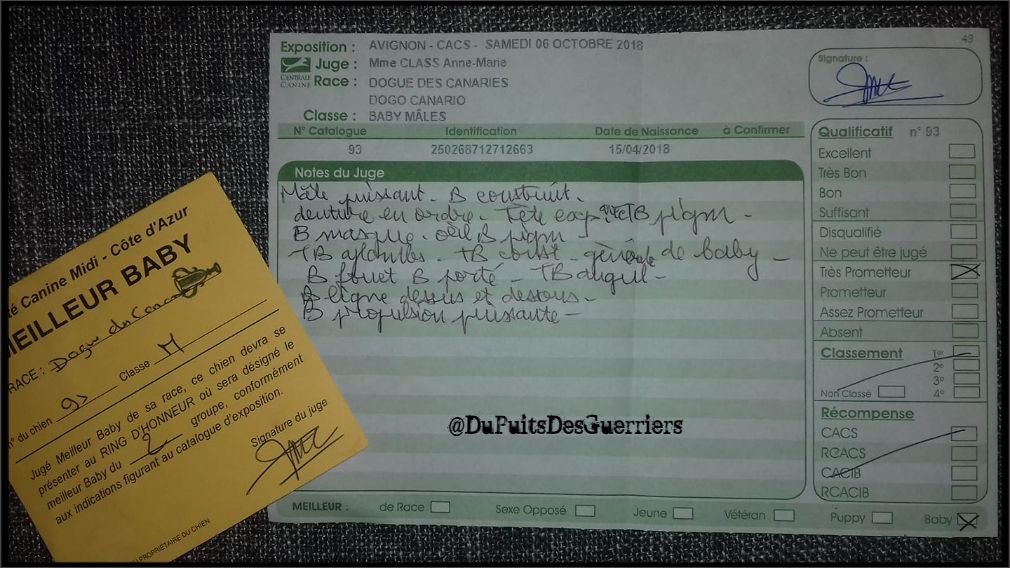 49
Exposition : AVIGNON - CACS - SAMEDI 06 OCTOBRE 2018
Juge : Mme CLASS Anne-Marie
CENTRALE CANINE
Race : DOGUE DES CANARIES
DOGO CANARIO
Classe : BABY MÂLES
Signature :
N° Catalogue Identification Date de Naissance à Confirmer
93 250268712712663 15/04/2018
Notes du Juge
Mâle puissant. B construit.
denture en ordre. Tête exp TB pigm -
B masque. œil B pigm -
TB aplombs. TB const. générale de baby -
B fouet B porté - TB angul -
B ligne dessus et dessous -
B propulsion puissante -
@DuPuitsDesGuerriers
Qualificatif n° 93
Excellent
Très Bon
Bon
Suffisant
Disqualifié
Ne peut être jugé
Très Prometteur
Prometteur
Assez Prometteur
Absent
Classement 1er
2e
3e
Non Classé 4e
Récompense
CACS
RCACS
CACIB
RCACIB
MEILLEUR : de Race Sexe Opposé Jeune Vétéran Puppy Baby
té Canine Midi - Côte d'Azur
MEILLEUR BABY
RACE : Dogue du Canaries
N° du chien 93 Classe M
Jugé Meilleur Baby de sa race, ce chien devra se
présenter au RING D'HONNEUR où sera désigné le
meilleur Baby du 2 groupe, conformément
aux indications figurant au catalogue d'exposition.
Signature du juge
PROPRIÉTAIRE DU CHIEN